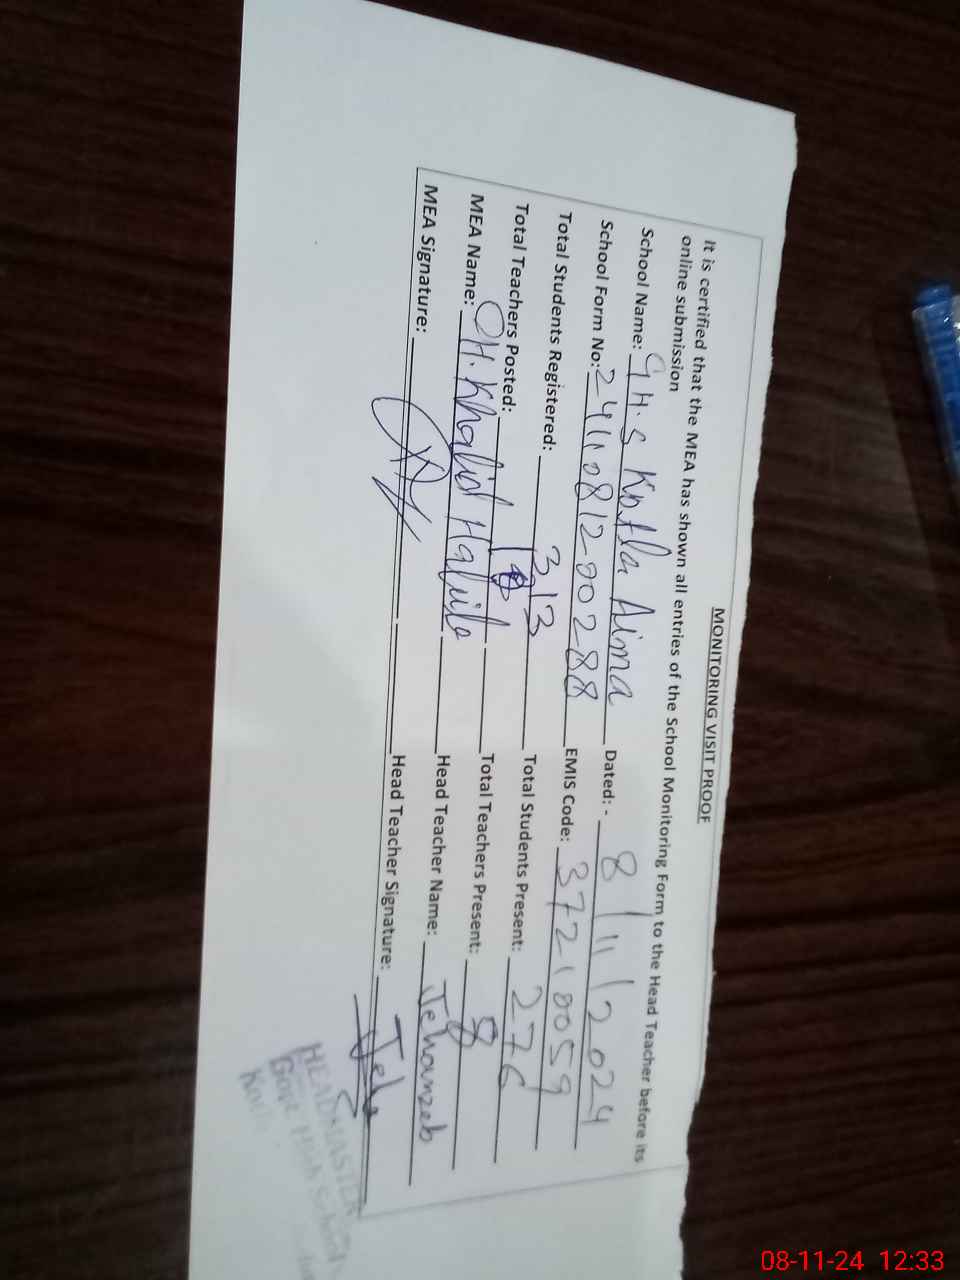 MONITORING VISIT PROOF
It is certified that the MEA has shown all entries of the School Monitoring Form to the Head Teacher before its
online submission
School Name: G H.S Kotla Aima Dated: - 8/11/2024
School Form No: 2411081200288 EMIS Code: 37210059
Total Students Registered: 313 Total Students Present: 276
Total Teachers Posted: Total Teachers Present: 8
MEA Name: CH. Khalid Habib Head Teacher Name: Jehanzeb
MEA Signature: Head Teacher Signature: Jehz
HEADMASTER
Govt High School
08-11-24 12:33